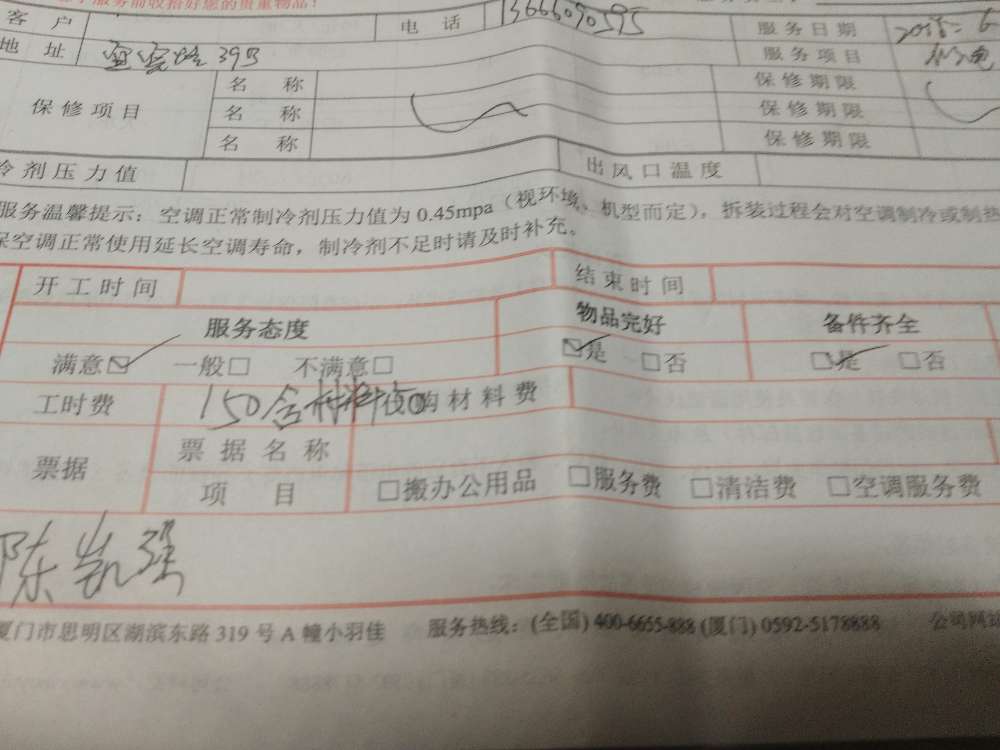 服务前收拾好您的贵重物品！
客户 电话 13666090595 服务日期
地址 39号 服务项目
名称 保修期限
保修项目 名称 保修期限
名称 保修期限
冷剂压力值 出风口温度
服务温馨提示：空调正常制冷剂压力值为 0.45mpa（视环境、机型而定），拆装过程会对空调制冷或制热
保空调正常使用延长空调寿命，制冷剂不足时请及时补充。
开工时间 结束时间
服务态度 物品完好 备件齐全
满意☑ 一般□ 不满意□ ☑是 □否 ☑是 □否
工时费 150含材料 购材料费
票据 票据名称
项目 □搬办公用品 □服务费 □清洁费 □空调服务费
陈凯强
厦门市思明区湖滨东路 319 号 A 幢小羽佳 服务热线：(全国) 400-6655-888 (厦门) 0592-5178888 公司网